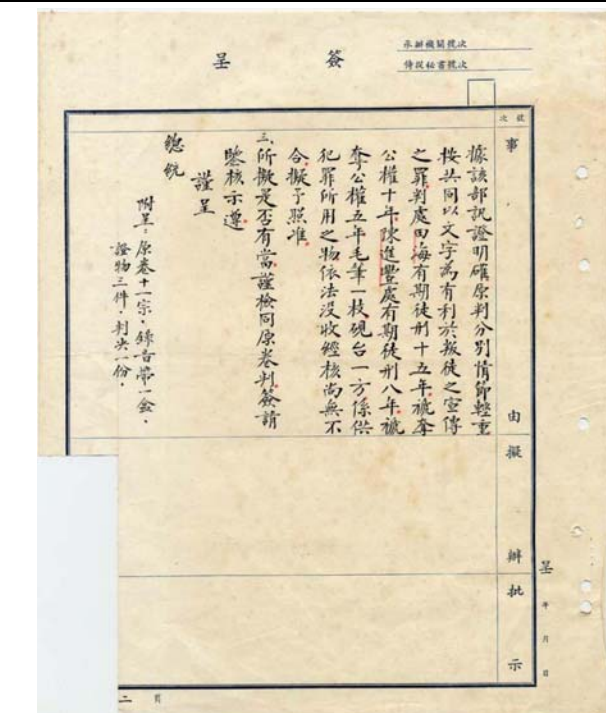 簽呈
承辦機關號次
侍從秘書號次
號次
事由
擬辦
批示
呈 年 月 日
據該部訊證明確原判分別情節輕重
按共同以文字為有利於叛徒之宣傳
之罪判處田海有期徒刑十五年褫奪
公權十年陳進豐處有期徒刑八年褫
奪公權五年毛筆一枝硯台一方係供
犯罪所用之物依法沒收經核尚無不
合擬予照准
三、所擬是否有當謹檢同原卷判簽請
鑒核示遵
謹呈
總統
附呈：原卷十一宗，錄音帶一盒，
證物三件，判決一份，
二頁